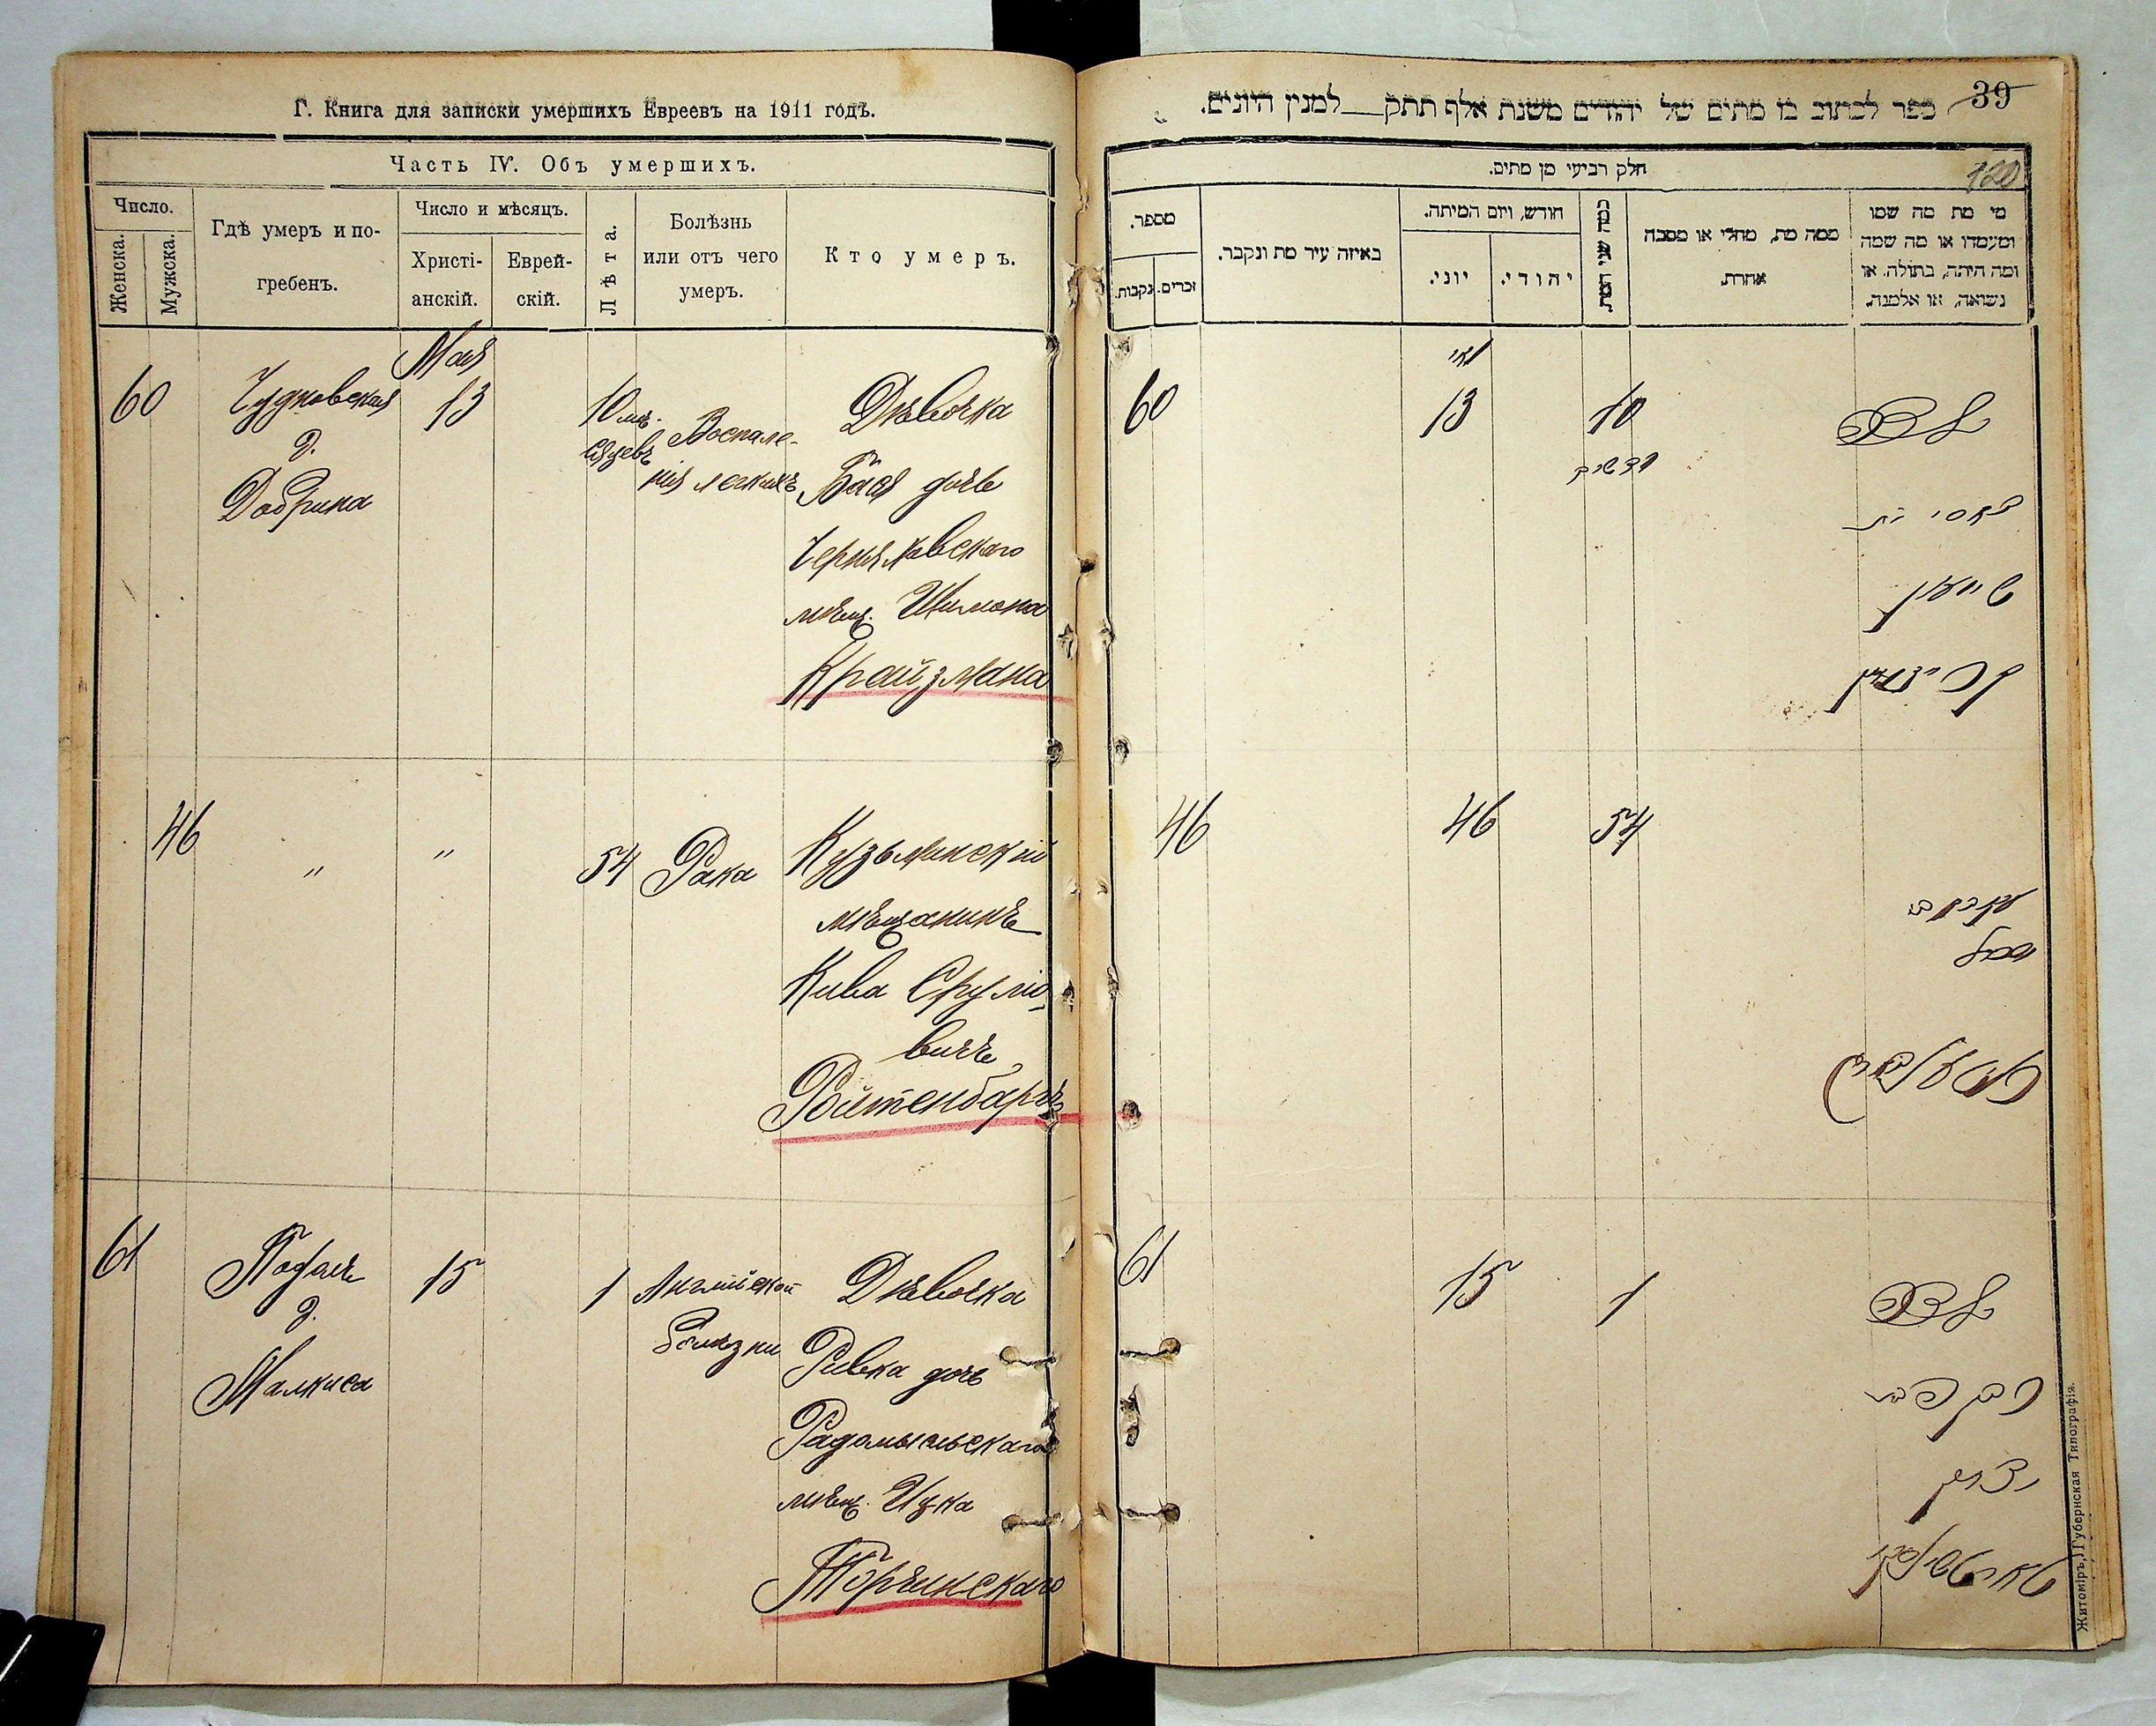 Г. Книга для записки умершихъ Евреевъ на 1911 годъ.
Часть IV. Объ умершихъ.
Число.
Женска.
Мужска.
Гдѣ умеръ и по-
гребенъ.
Число и мѣсяцъ.
Христі-
анскій.
Еврей-
скій.
Лѣта.
Болѣзнь
или отъ чего
умеръ.
Кто умеръ.
Мая
60
Чудновская
д.
Добрина
13
10 мѣ-
сяцевъ
Воспале-
нія легкихъ
Дѣвочка
Бася дочь
Черняховскаго
мѣщ. Шимона
Крайзмана
46
"
"
54
Рака
Кузьминскій
мѣщанинъ
Кива Срулю-
вичъ
Ройтенбаргъ
61
д.
Малкиса
15
1
Англійской
болѣзни
Дѣвочка
Ривка дочь
Радомысльскаго
мѣщ. Ицка
Торчинскаго
39
ספר לכתוב בו מתים של יהודים משנת אלף תתק למנין היונים.
120
חלק רביעי מן מתים.
מספר.
נקבות.
זכרים.
באיזה עיר מת ונקבר.
חודש, ויום המיתה.
יוני.
יהודי.
כמה שני המת
ממה מת, מחלי או מסבה
אחרת.
מי מת מה שמו
ומעמדו או מה שמה
ומה היתה, בתולה. או
נשואה, או אלמנה.
מאי
60
13
10
חדשים
שימעון
46
46
54
עקיבה
61
15
1
רבקה
יצחק
טארטשינסקי
Житоміръ, Губернская Типографія.